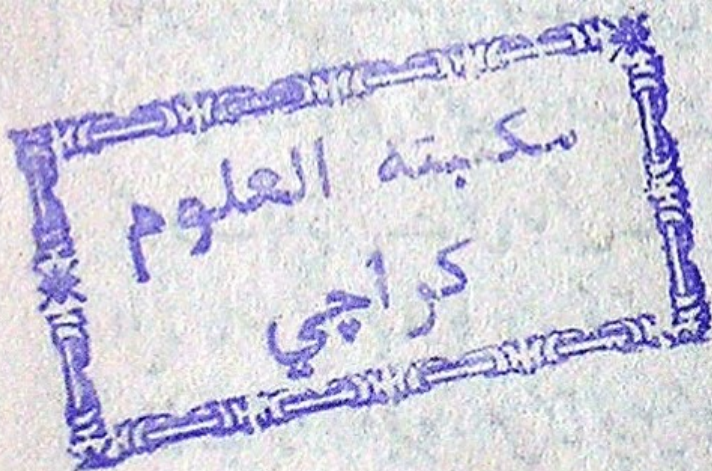 مكبتة العلوم
كراچي